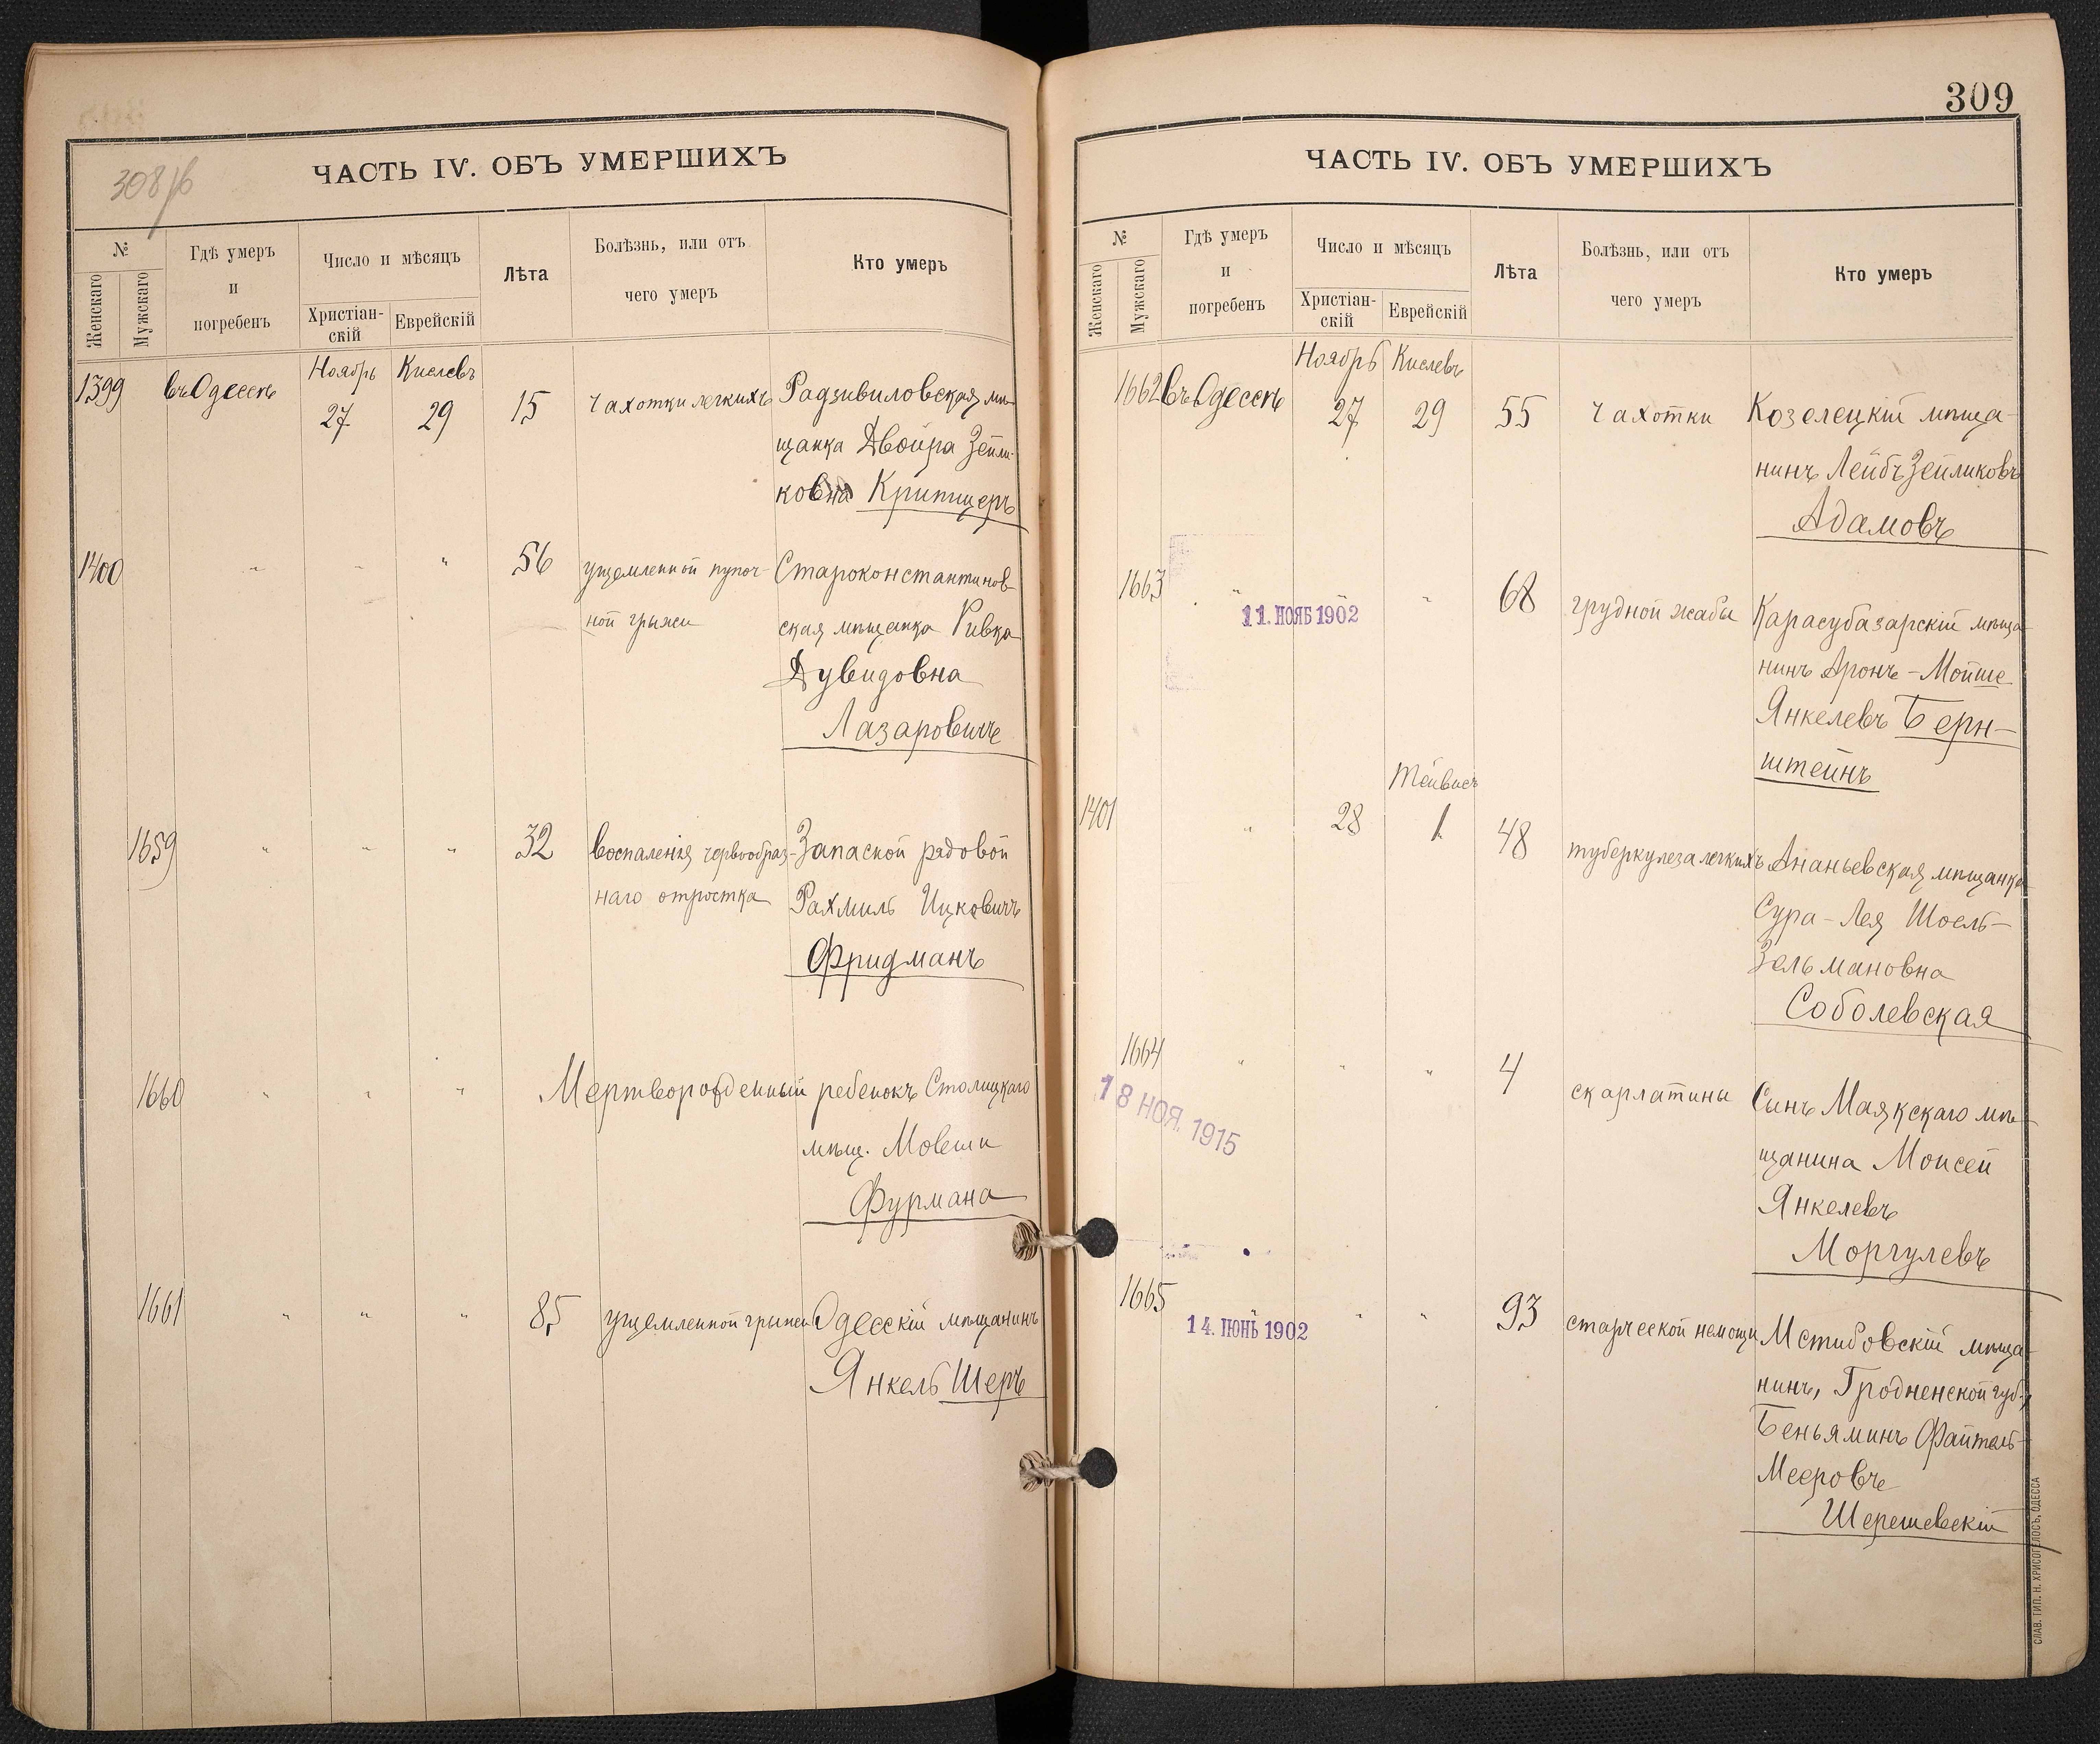 308 об
ЧАСТЬ IV. ОБЪ УМЕРШИХЪ
№
Женскаго
Мужскаго
Гдѣ умеръ
и
погребенъ
Число и мѣсяцъ
Христіан-
скій
Еврейскій
Лѣта
Болѣзнь, или отъ
чего умеръ
Кто умеръ
Ноябрь Кислевъ
1399 въ Одессѣ 27 29 15 чахотки легкихъ Радзивиловская мѣ-
щанка Двойра Зейли-
ковна Крипицеръ
1400 " " " 56 ущемленной пупоч- Староконстантинов-
ной грыжи ская мѣщанка Ривка
Дувидовна
Лазаровичъ
1659 " " " 32 воспаленія червообраз- Запасной рядовой
наго отростка Рахмиль Ицковичъ
Фридманъ
1660 " " " Мертворожденный ребенокъ Столицкаго
мѣщ. Мовши
Фурмана
1661 " " " 85 ущемленной грыжи Одесскій мѣщанинъ
Янкель Шеръ
309
ЧАСТЬ IV. ОБЪ УМЕРШИХЪ
№
Женскаго
Мужскаго
Гдѣ умеръ
и
погребенъ
Число и мѣсяцъ
Христіан-
скій
Еврейскій
Лѣта
Болѣзнь, или отъ
чего умеръ
Кто умеръ
Ноябрь Кислевъ
1662 въ Одессѣ 27 29 55 чахотки Козелецкій мѣща-
нинъ Лейбъ Зейликовъ
Адамовъ
1663 " " " 68 грудной жабы Карасубазарскій мѣща-
11. НОЯБ 1902
нинъ Аронъ-Мойше
Янкелевъ Берн-
штейнъ
Тейвисъ
1401 " 28 1 48 туберкулеза легкихъ Ананьевская мѣщанка
Сура-Лея Шоель-
Зельмановна
Соболевская
1664 " " " 4 скарлатины Сынъ Маякскаго мѣ-
18 НОЯ. 1915
щанина Моисей
Янкелевъ
Моргулевъ
1665 " " " 93 старческой немощи Мстибовскій мѣща-
14. ІЮНЬ 1902
нинъ, Гродненской губ.,
Беньяминъ Файтель-
Мееровъ
Шерешевскій
СЛАВ. ТИП. Н. ХРИСОГЕЛОСЪ, ОДЕССА